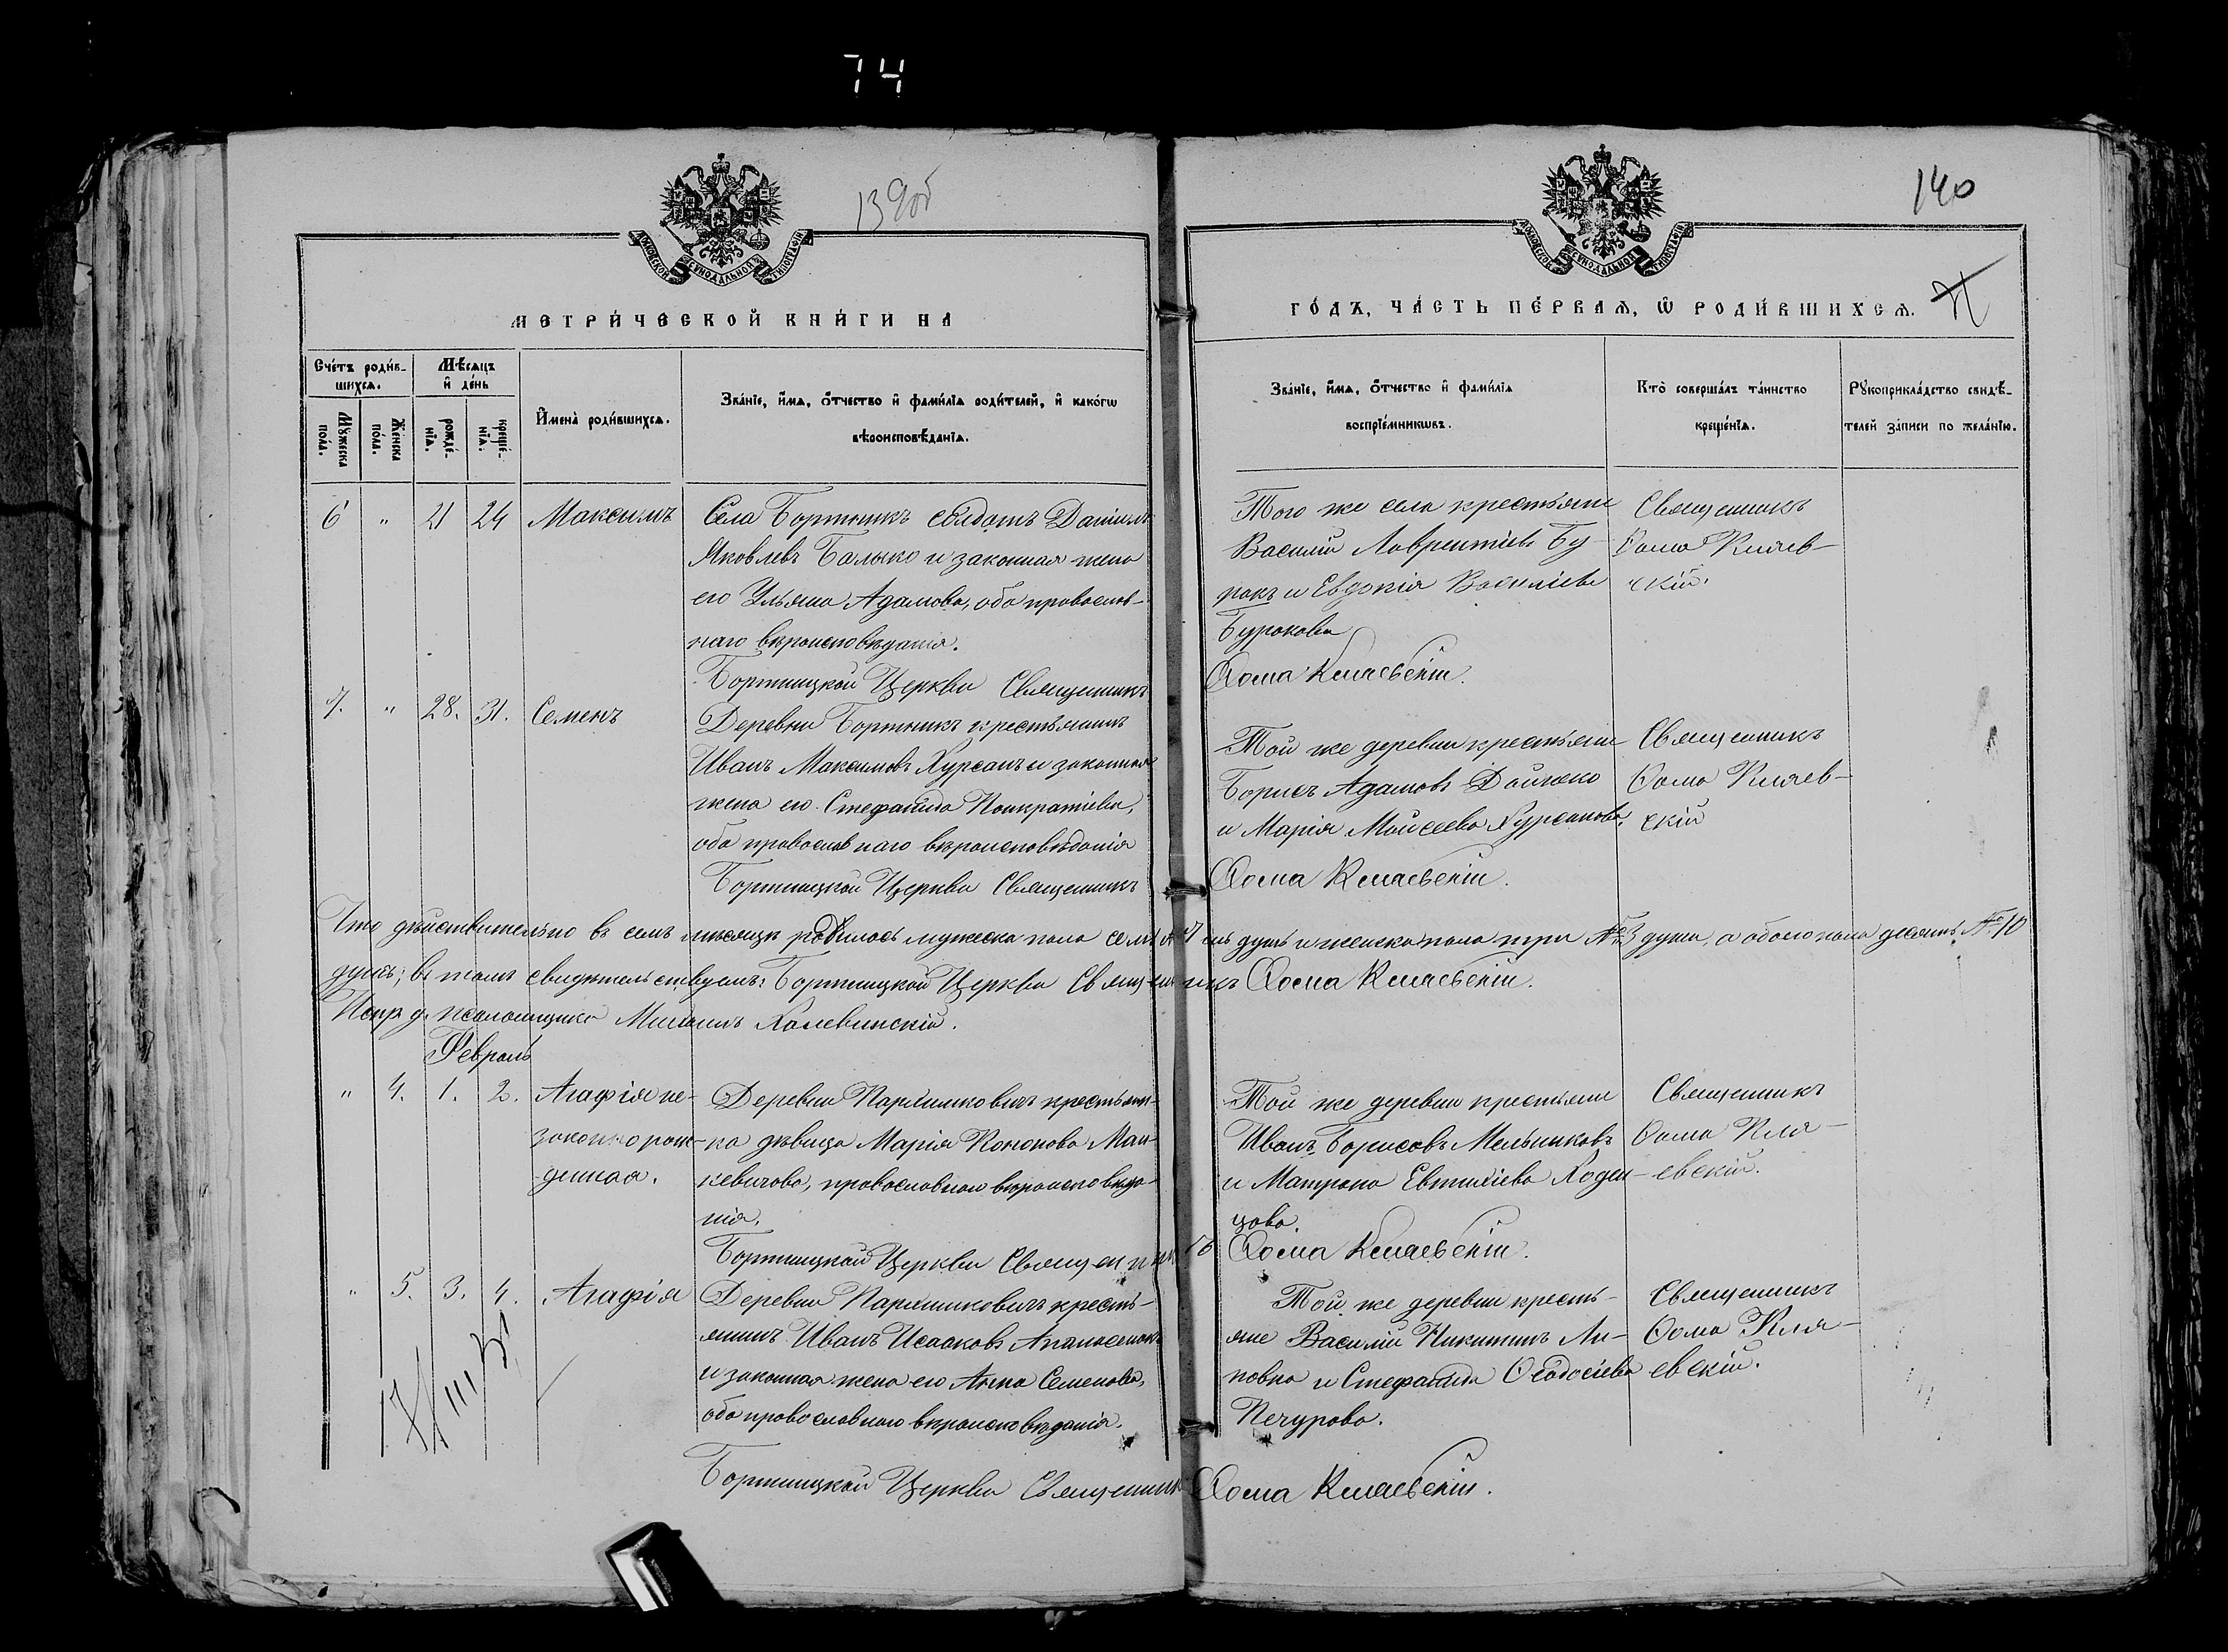 74
139об
140
МЕТРИ́ЧЕСКОЙ КНИ́ГИ НА
ГО́ДЪ, ЧА́СТЬ ПЕ́РВАЯ, Ѿ РОДИ́ВШИХСЯ.
Сче́тъ роди́в-
шихся.
Мѣ́сяцъ
и҆ де́нь
Му́жеска по́ла.
Же́нска по́ла.
рожде́-
нїя.
креще́-
нїя.
И҆мена̀ роди́вшихся.
Зва́нїе, и҆́мя, о҆́тчество и҆ фами́лїя роди́телей, и҆ како́гѡ
вѣроисповѣ́данїя.
Зва́нїе, и҆́мя, о҆́тчество и҆ фами́лїя
воспрїе́мникѡвъ.
Кто̀ соверша́лъ та́инство
креще́нїя.
Рꙋкоприкла́дство свидѣ́-
телей за́писи по жела́нїю.
6 " 21 24 Максимъ
Села Бортникъ солдатъ Даніилъ
Яковлевъ Балыко и законная жена
его Ульяна Адамова, оба православ-
наго вѣроисповѣданія.
Бортницкой Церкви Священникъ
Того же села крестьяне
Василій Лаврентіевъ Бу-
ракъ и Евдокія Васильева
Буракова
Ѳома Кляевскій.
Священникъ
Ѳома Кляев-
скій.
7. " 28. 31. Семенъ
Деревни Бортникъ крестьянинъ
Иванъ Максимовъ Хурсанъ и законная
жена его Стефанида Панкратіева,
оба православнаго вѣроисповѣданія
Бортницкой Церкви Священникъ
Той же деревни крестьяне
Борисъ Адамовъ
и Марія Моисеева Хурсанова.
Ѳома Кляевскій.
Священникъ
Ѳома Кляев-
скій
Что дѣйствительно въ семъ мѣсяцѣ родилось мужеска пола семь №7 душъ и женска пола три №3 души, а обоего пола десять №10
душъ; въ томъ свидѣтельствуемъ: Бортницкой Церкви Священникъ Ѳома Кляевскій.
Испр. д. псаломщика Михаилъ
Февраль
" 4. 1. 2. Агафія не-
законнорож-
денная.
Деревни Пархимковичъ крестьян-
ка дѣвица Марія Кононова Мац-
кевичова, православнаго вѣроисповѣда-
нія.
Бортницкой Церкви Священникъ
Той же деревни крестьяне
Иванъ Борисовъ Мельниковъ
и Матрона Евтихіева
цова.
Ѳома Кляевскій.
Священникъ
Ѳома Кля-
евскій.
" 5. 3. 4. Агафія
Деревни Пархимковичъ кресть-
янинъ Иванъ Исааковъ
и законная жена его Анна Семенова,
оба православнаго вѣроисповѣданія.
Бортницкой Церкви Священникъ
Той же деревни кресть-
яне Василій Никитинъ
и Стефанида Ѳеодосіева
Печурова.
Ѳома Кляевскій.
Священникъ
Ѳома Кля-
евскій.